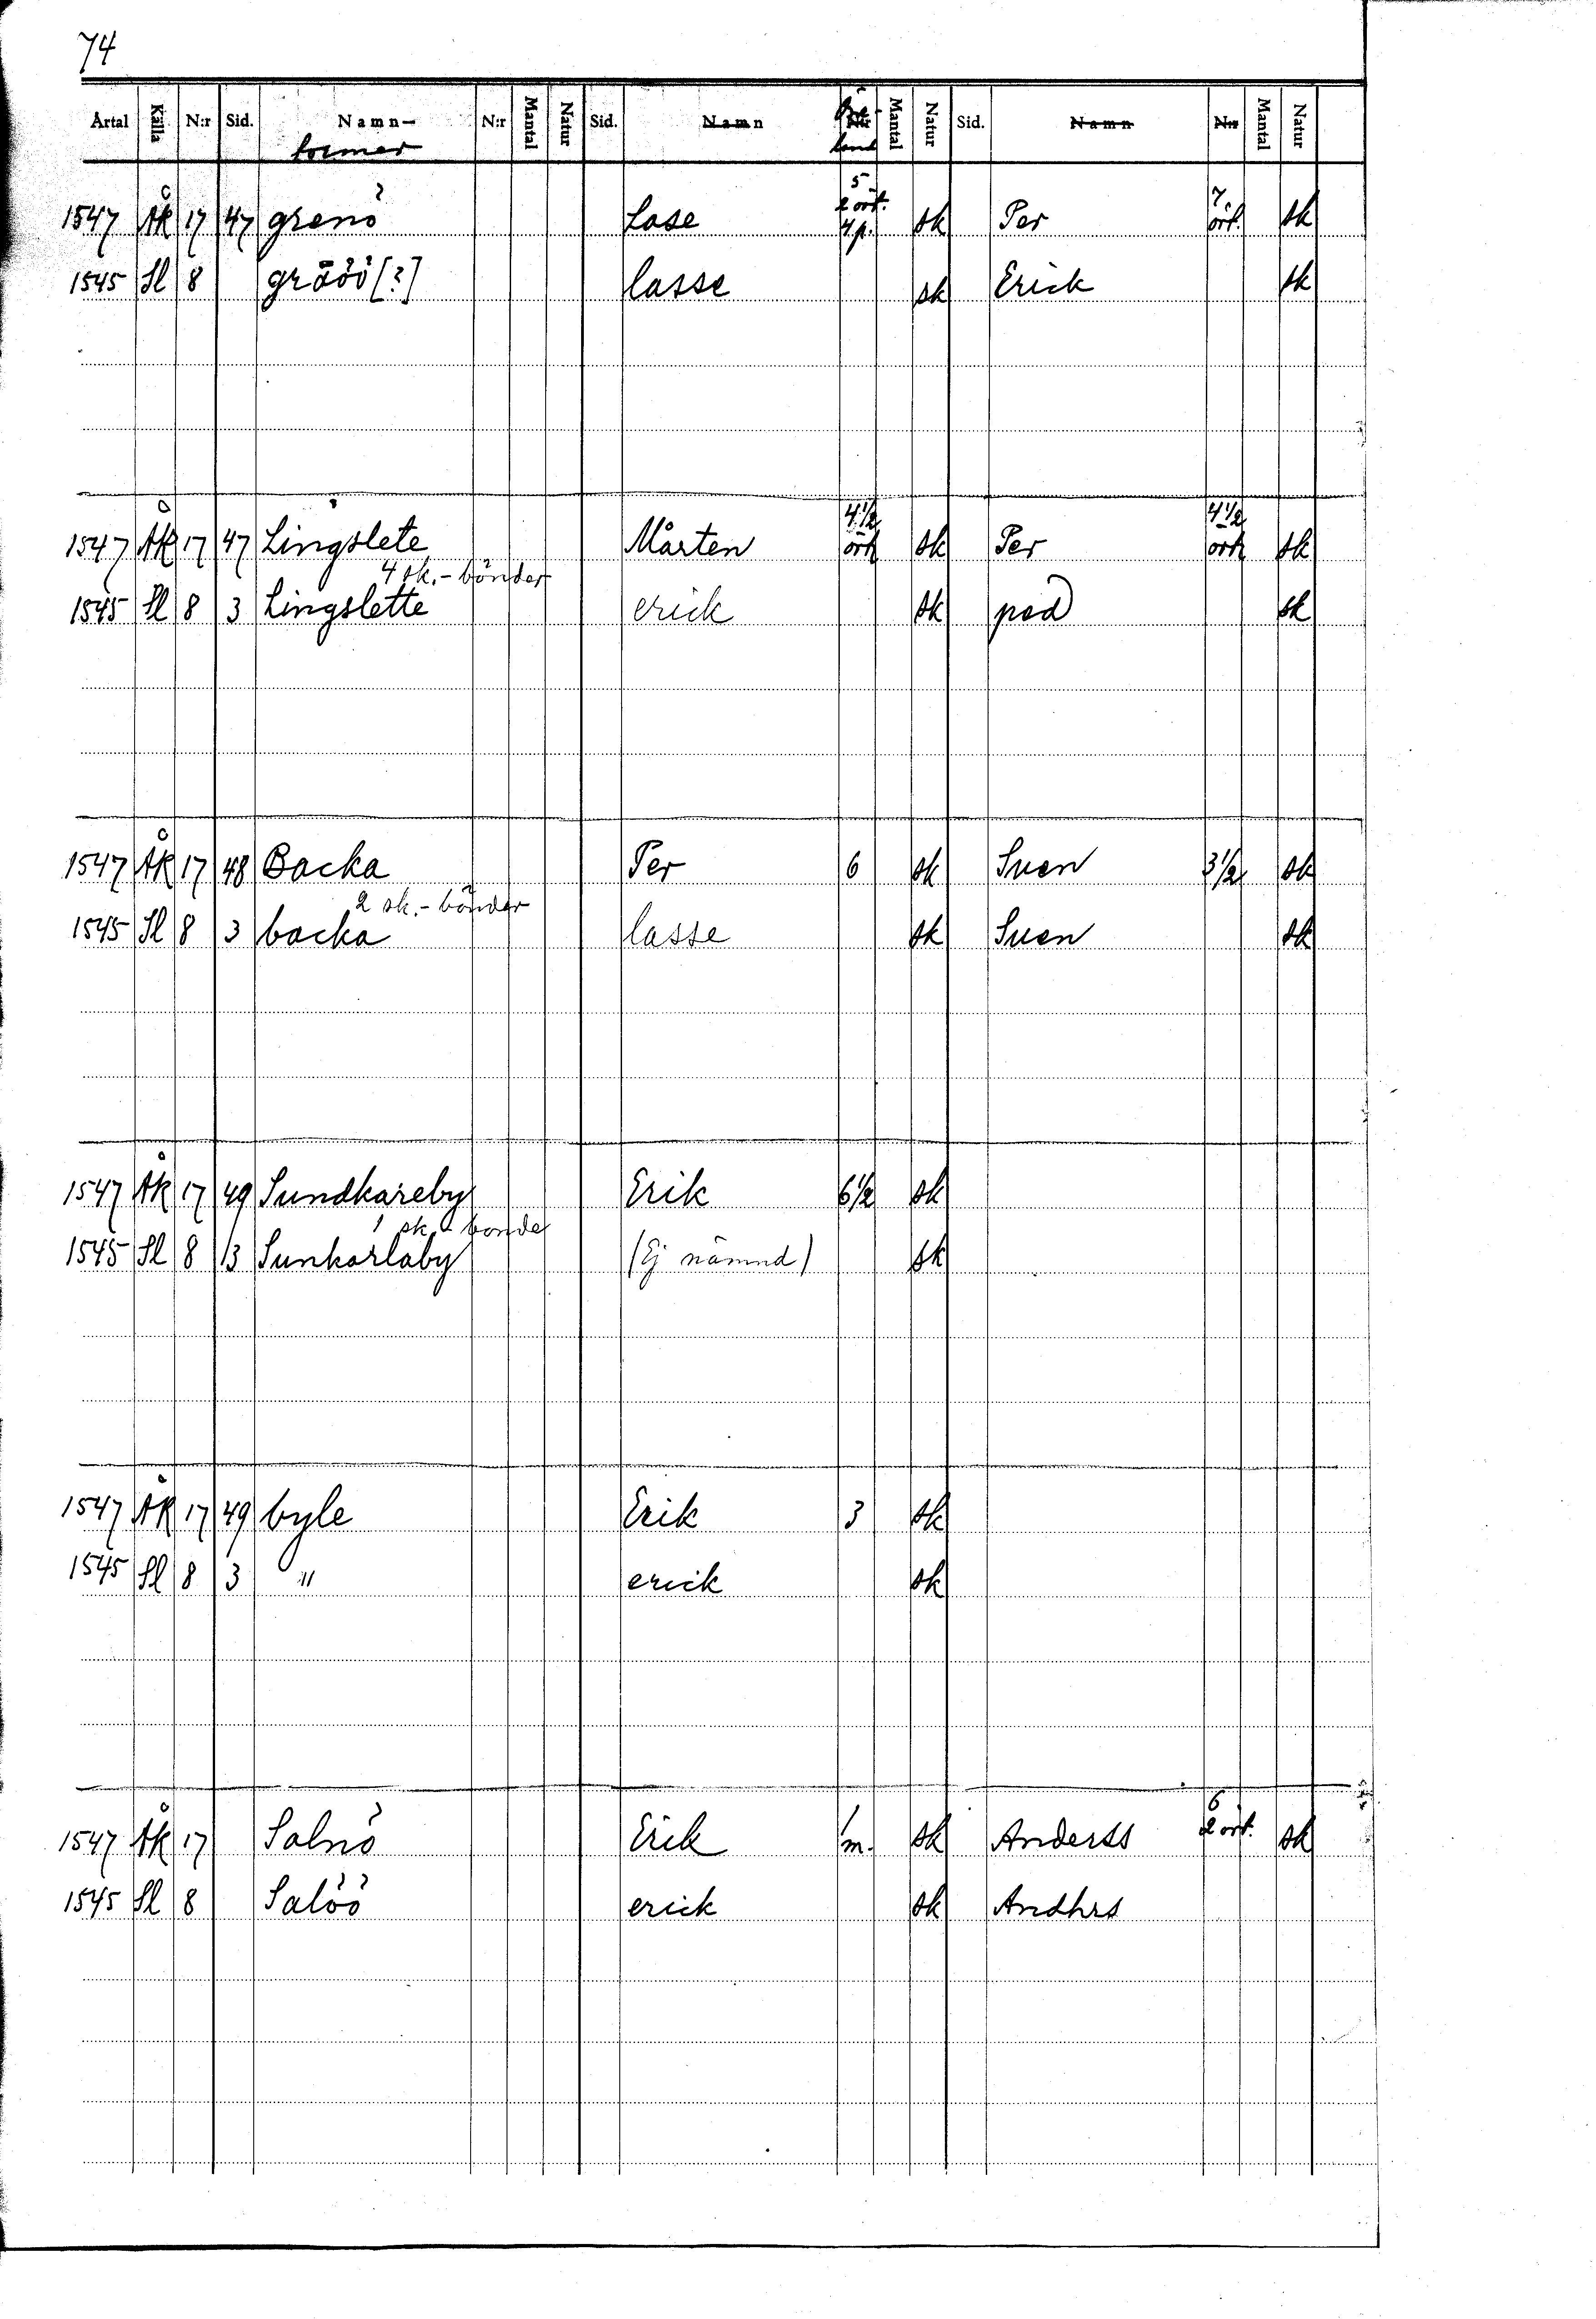 74
Årtal Källa N:r Sid. Namn- N:r Mantal Natur Sid. Namn N:r Mantal Natur Sid. Namn N:r Mantal Natur
former land
5 7
2 ört. ört.
1547 ÅK 17 47 grenö Lase 4 p. sk Per sk
1545 Sl 8 gräöö [?] lasse sk Erick sk
4 1/2 4 1/2
1547 ÅK 17 47 Lingslete Mårten ört sk Per ört sk
4 sk.-bönder
1545 Sl 8 3 Lingslette erick sk ped sk
1547 ÅK 17 48 Backa Per 6 sk Sven 3 1/2 sk
2 sk.-bönder
1545 Sl 8 3 backa lasse sk Sven sk
1547 ÅK 17 49 Sundkareby Erik 6 1/2 sk
1 sk.-bonde
1545 Sl 8 13 Sunkarlaby (Ej nämnd) sk
1547 ÅK 17 49 byle Erik 3 sk
1545 Sl 8 3 " erick sk
6
1547 ÅK 17 Salnö Erik 1 m. sk Anderss 2 ört. sk
1545 Sl 8 Salöö erick sk Andhrs